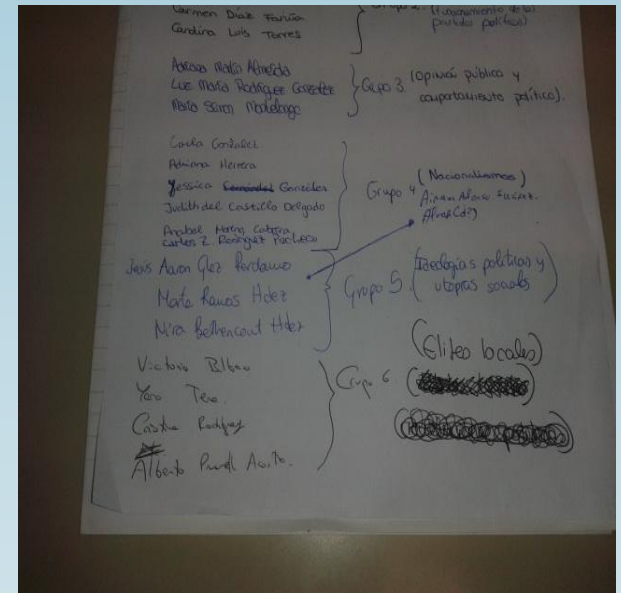 Carmen Díaz Fariña
Carolina Luis Torres
Grupo 2. (funcionamiento de los partidos políticos)
Adriana María Almeida
Luz María Rodríguez González
María Simón Modelongo
Grupo 3. (Opinión público y comportamiento político).
Carla González
Adriana Herrera
Yessica González
Judith del Castillo Delgado
Anabel Cabrera
Carlos Z. Rodríguez Pacheco
Grupo 4 (Nacionalismos)
Suárez.
Jesús Aaron Glez Perdomo
Marta Ramos Hdez
Nira Bethencourt Hdez
Grupo 5. (Ideologías políticas y utopías sociales)
Victoria Bilbao
Yero Tena.
Cristina Rodríguez
Alberto
Grupo 6
(Elites locales)